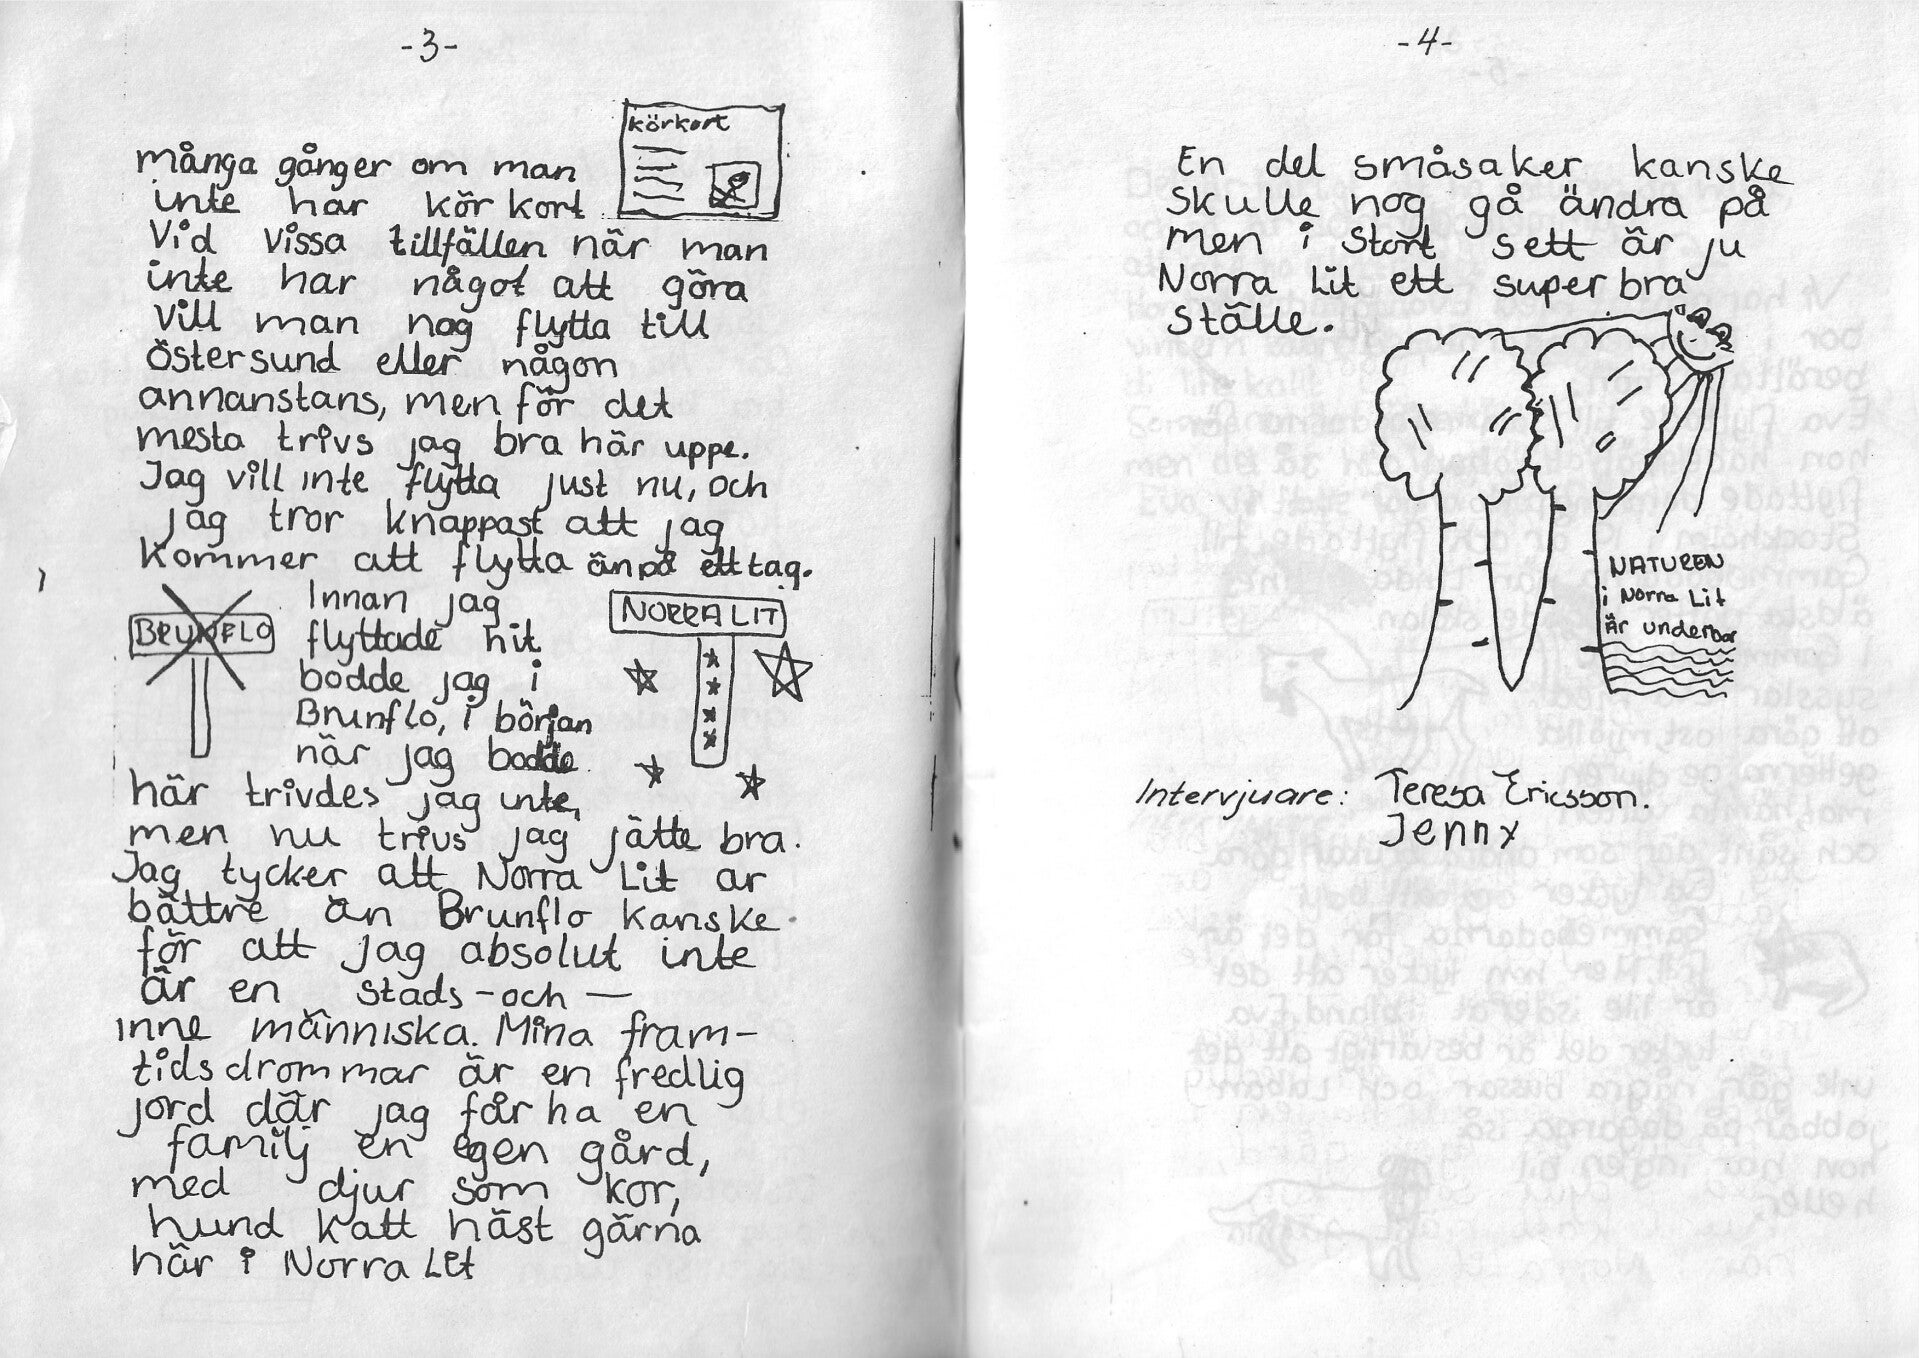 -3-
körkort
många gånger om man
inte har körkort
Vid vissa tillfällen när man
inte har något att göra
vill man nog flytta till
östersund eller någon
annanstans, men för det
mesta trivs jag bra här uppe.
Jag vill inte flytta just nu, och
jag tror knappast att jag
kommer att flytta än på ett tag.
BRUNFLO
NORRA LIT
Innan jag
flyttade hit
bodde jag i
Brunflo, i början
när jag bodde
här trivdes jag inte,
men nu trivs jag jätte bra.
Jag tycker att Norra Lit ar
bättre än Brunflo kanske
för att jag absolut inte
är en stads-och—
inne människa. Mina fram-
tidsdrommar är en fredlig
jord där jag får ha en
familj en egen gård,
med djur som kor,
hund katt häst gärna
här i Norra Lit
-4-
En del småsaker kanske
skulle nog gå ändra på
men i stort sett är ju
Norra Lit ett super bra
ställe.
NATUREN
i Norra Lit
Är underbar
Intervjuare: Teresa Ericsson.
Jenny